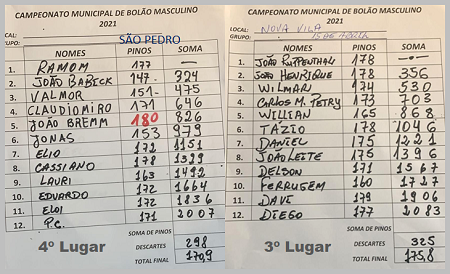 CAMPEONATO MUNICIPAL DE BOLÃO MASCULINO
2021
LOCAL:
GRUPO: SÃO PEDRO
NOMES PINOS SOMA
1. RAMOM 177 —
2. JOÃO BABICK 147- 324
3. VALMOR 151- 475
4. CLAUDIOMIRO 171 646
5. JOÃO BREMM 180 826
6. JONAS 153 979
7. ELIO 172 1151
8. CASSIANO 178 1329
9. LAURI 163 1492
10. EDUARDO 172 1664
11. ELOI 172 1836
12. P.C. 171 2007
SOMA DE PINOS
DESCARTES 298
TOTAL FINAL 170,9
4º Lugar
CAMPEONATO MUNICIPAL DE BOLÃO MASCULINO
2021
LOCAL: NOVA VILA
GRUPO: 15 DE
NOMES PINOS SOMA
1. JOÃO RUPPENTHAL 178 —
2. JOÃO HENRIQUE 178 356
3. WILMAR 174 530
4. CARLOS M. PETRY 173 703
5. WILLIAN 165 868
6. TAZIO 178 1046
7. DANIEL 175 1221
8. JOÃO LEITE 175 1396
9. DELSON 171 1567
10. FERRUGEM 160 1727
11. DAVI 179 1906
12. DIEGO 177 2083
SOMA DE PINOS
DESCARTES 325
TOTAL FINAL 175,8
3º Lugar